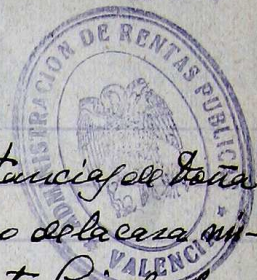 ADMINISTRACION DE RENTAS PUBLICAS
VALENCIA
tancias de Doña
o de la casa nú-